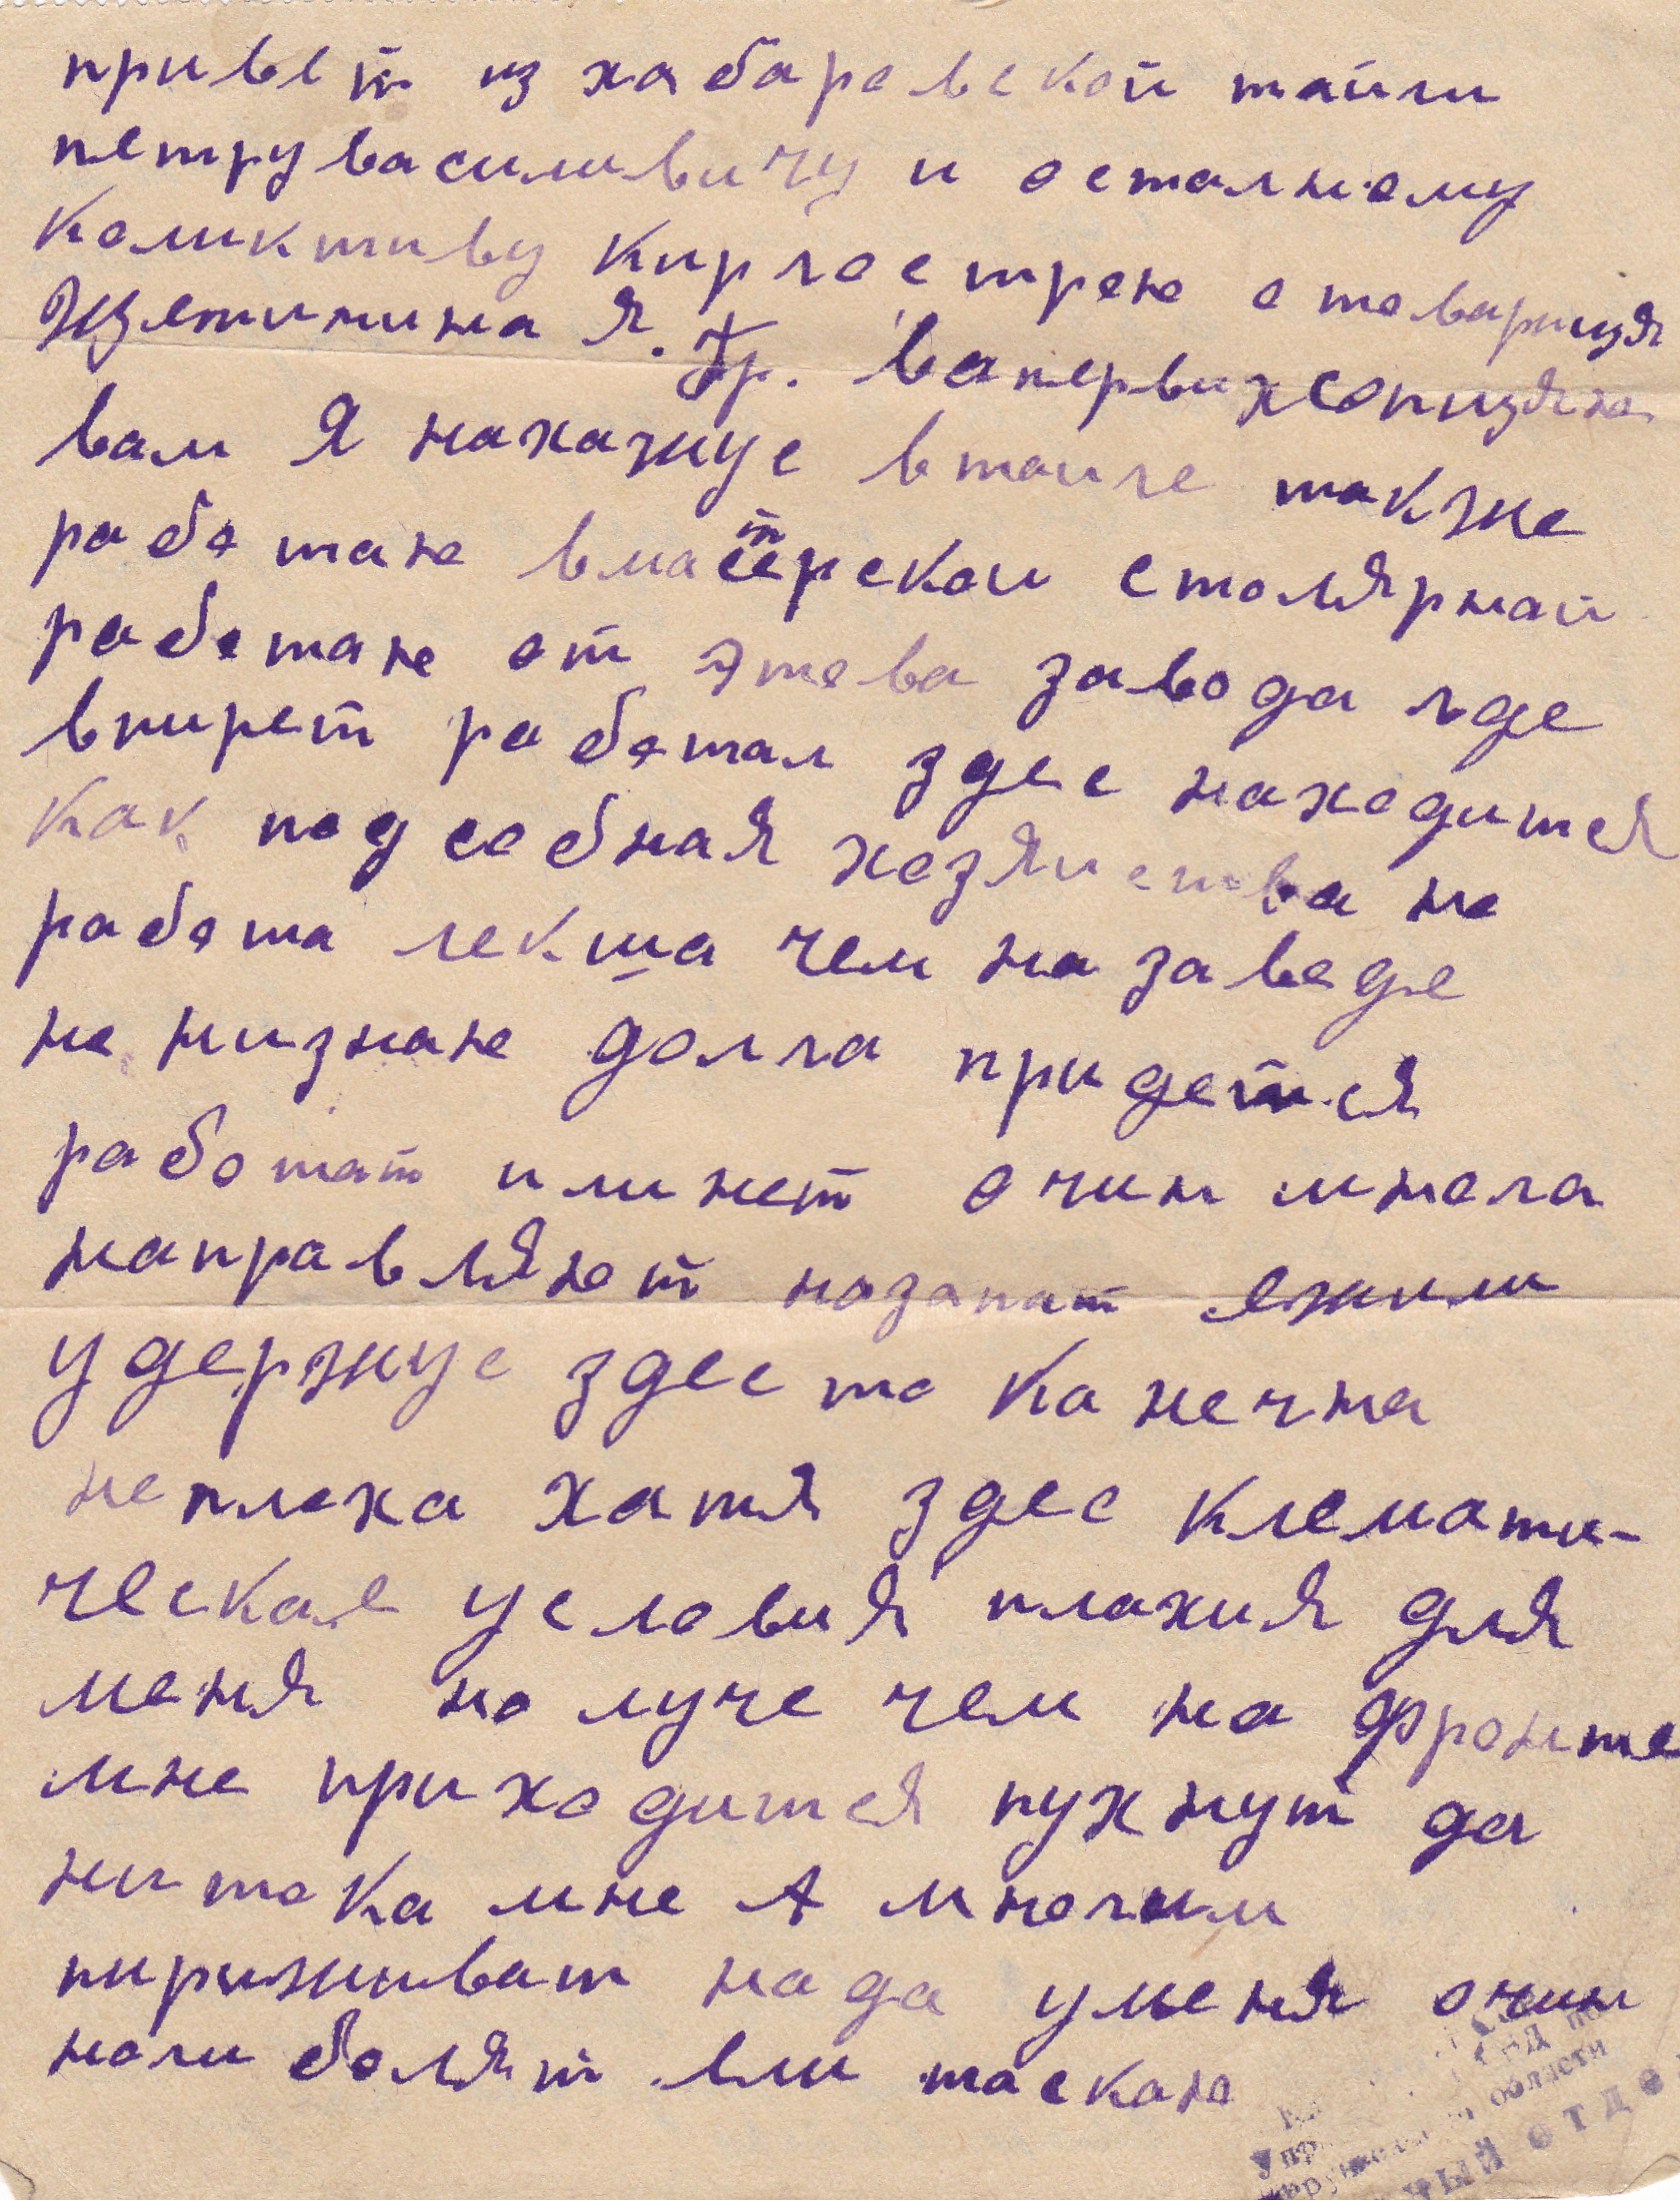 привет из хабаровской тайги
петру василивичу и осталному
коликтиву Киргостреке отоварищя
Щетинина Я. Гр. вапервых сопщяю
вам Я нахажус втаиге также
работаю вмастерской столярнай
работаю от этова завода где
впирет работал здес находится
как подсобная хозяиства но
работа лекша чем на заводе
но низнаю долга придется
работат илинет очин много
направляют назапат ежили
удержус здес то канечна
неплоха хатя здес клемати-
ческае условия плахия для
меня но луче чем на фронте
мне приходится пухнут да
нитока мне А многим
пириживат нада уменя очин
ноги болят ели таскаю
области
отдел